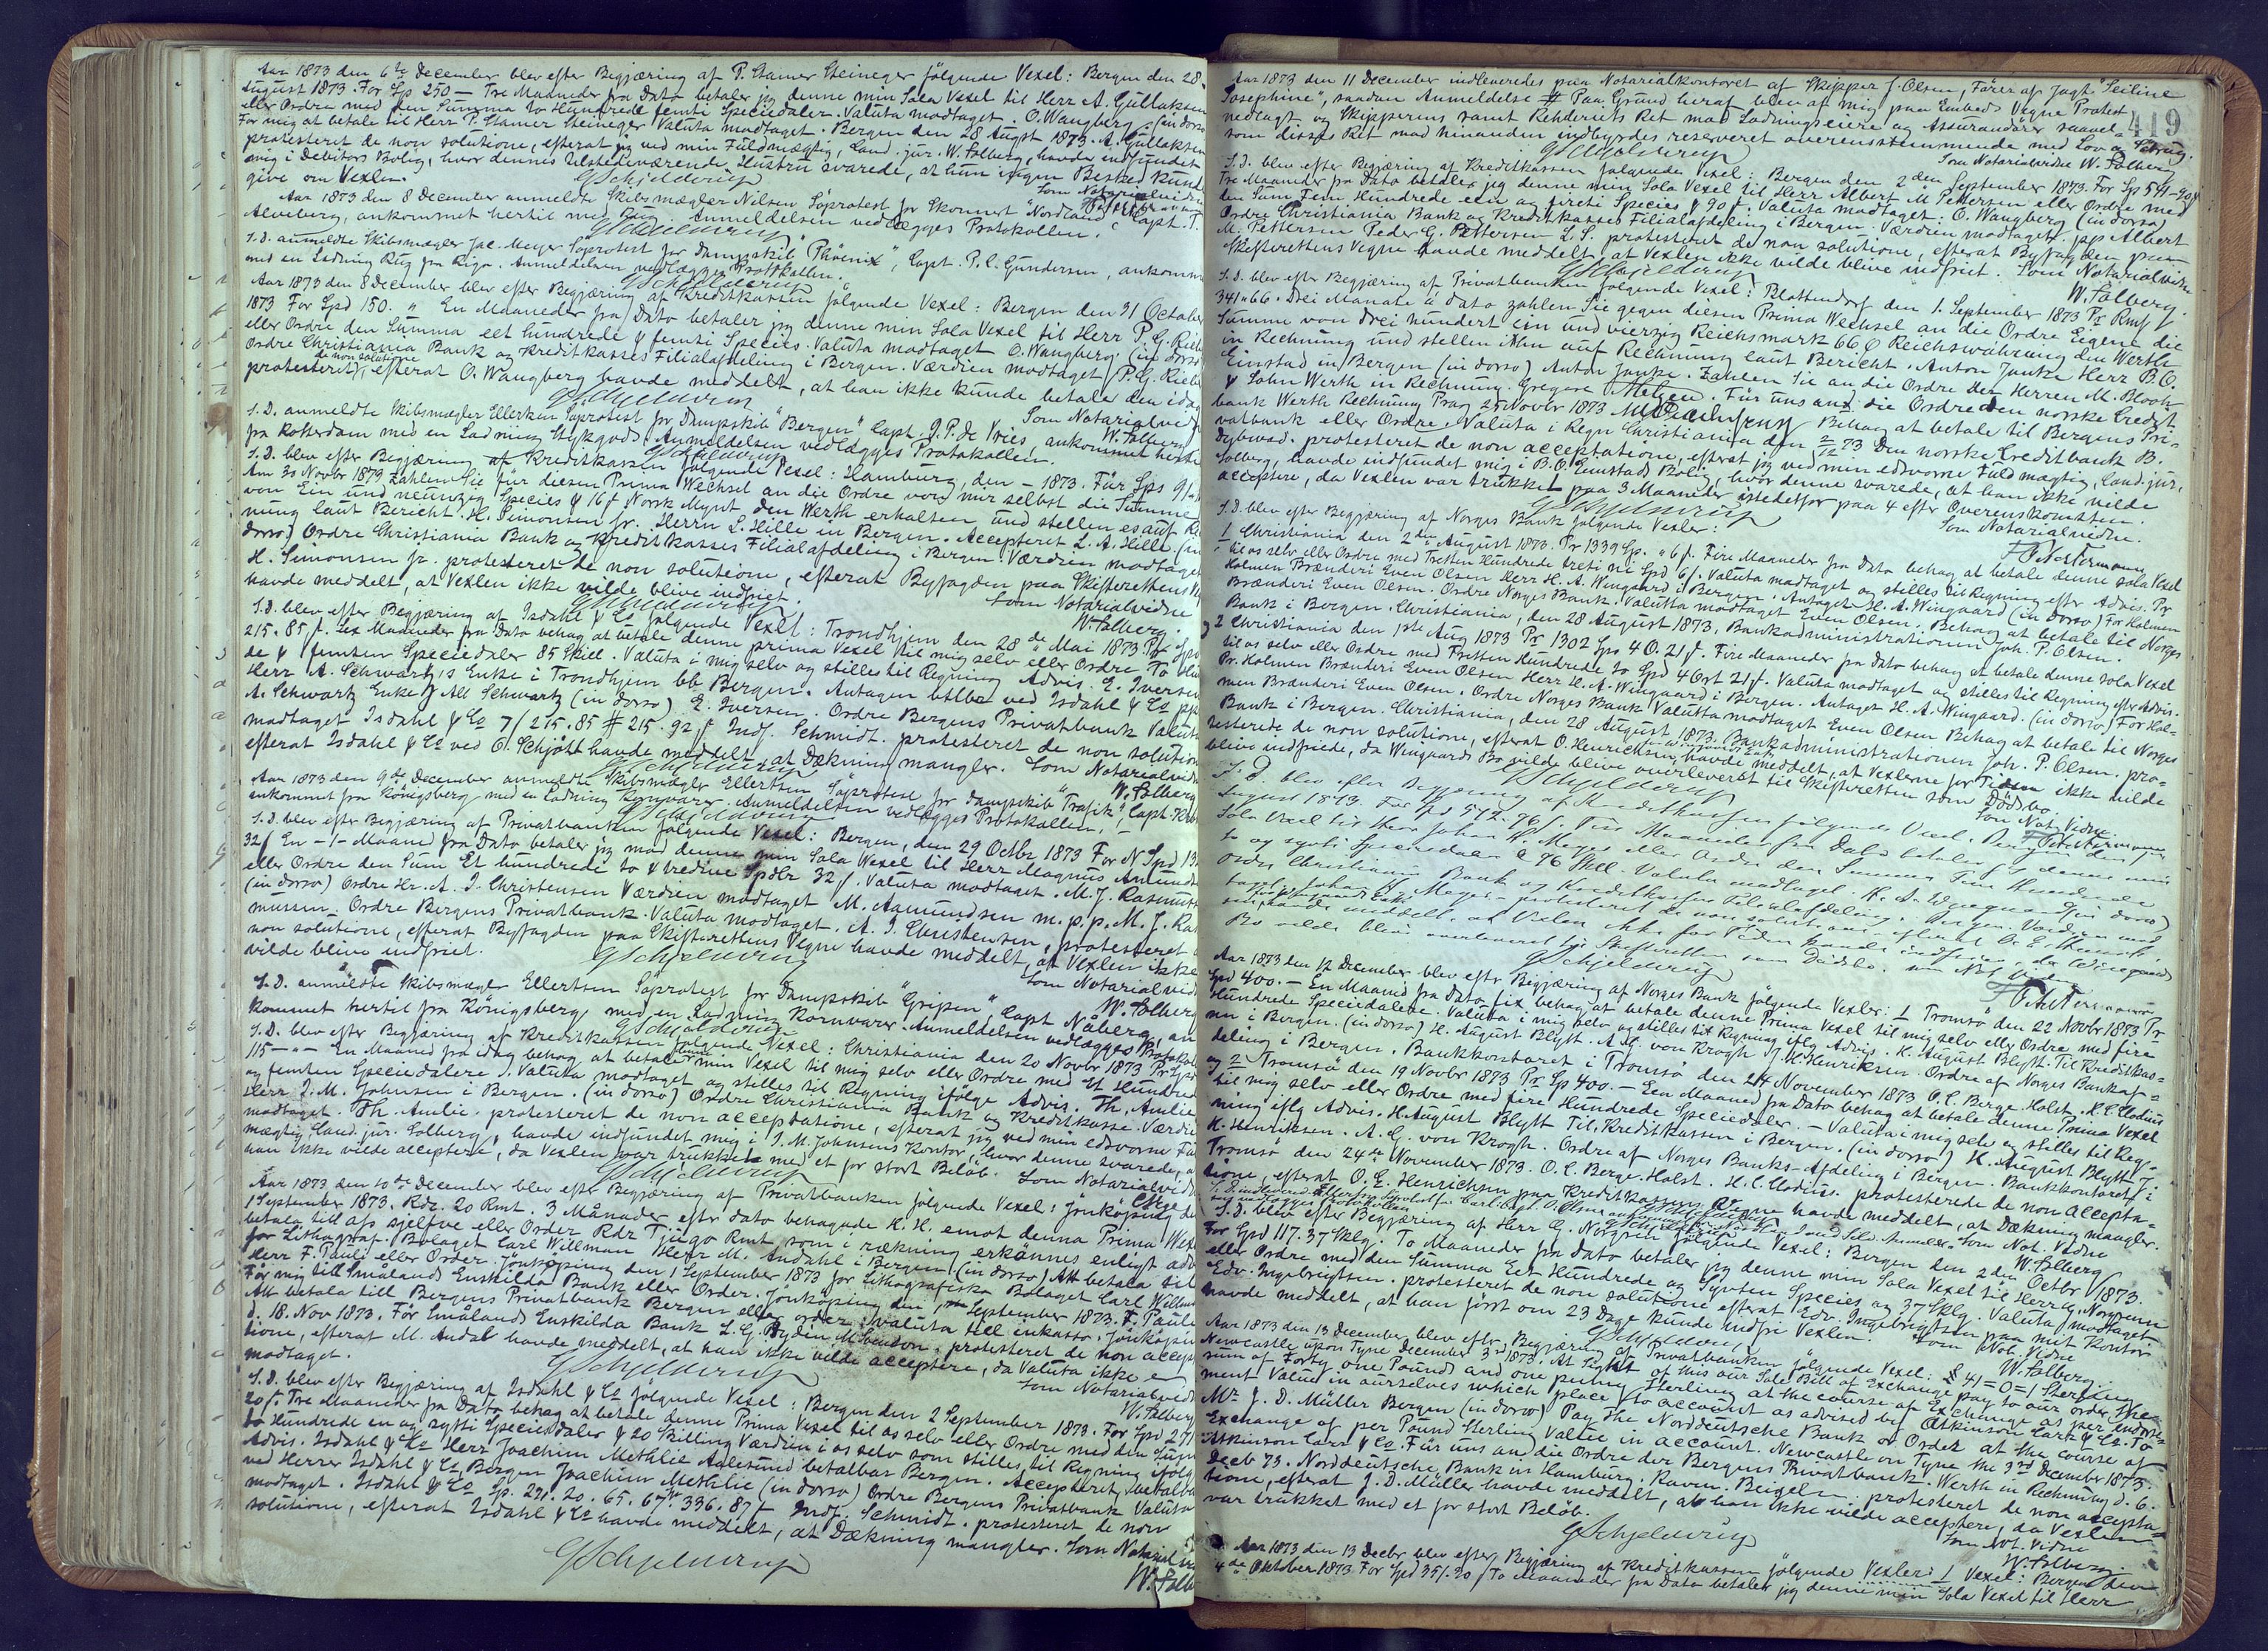 Aar 1873 den 6te December blev efter Begjæring af P. Stamer Steineger følgende Vexel: Bergen den 28
August 1873. For Sp 250 — Tre Maaneder fra Dato betaler jeg denne min Sola Vexel til Herr A. Gullaksen
eller Ordre med den Summa to Hundrede femti Speciedaler. Valuta modtaget. O. Wangberg — (in dorso
For mig at betale til Herr P. Stamer Steineger Valuta modtaget. Bergen den 28 Augst 1873. A. Gullaksen
protesteret de non solutione, efterat jeg ved min Fuldmægtig, Cand. jur. W. Solberg, havde indfundet
mig i Debitors Bolig, hvor dennes tilstedeværende Hustru svarede, at hun ingen Besked kunde
give om Vexlen. GSchjelderup Som Notarialvidne
Aar 1873 den 8 December anmeldte Skibsmægler Nilsen Søprotest for Skonnert "Nordlandet" Capt. T.
Alveberg, ankommet hertil med Rug. Anmeldelsen vedlægges Protokollen.
GSchjelderup
S.D. anmeldte Skibsmægler Jac. Meyer Søprotest for Dampskib "Phönix", Capt. P. C. Gundersen, ankommet
med en Ladning Rug fra Riga. Anmeldelsen vedlægges Protokollen.
GSchjelderup
Aar 1873 den 8 December blev efter Begjæring af Kreditkassen følgende Vexel: Bergen den 31 October
1873 For Spd 150. " En Maaneder fra Dato betaler jeg denne min Sola Vexel til Herr P. G. Rieb
eller Ordre den Summa eet hundrede & femti Species. Valuta modtaget O. Wangberg. (in dorso
Ordre Christiania Bank og Kreditkasses Filialafdeling i Bergen. Værdien modtaget P. G. Rieb
de non solutione
protesteret, efterat O. Wangberg havde meddelt, at han ikke kunde betale den idag
GSchjelderup Som Notarialvidne
W. Solberg
S.D. anmeldte Skibsmægler Ellerksen Søprotest for Dampskib "Bergen" Capt. J. P. de Vries, ankommet hertil
fra Rotterdam med en Ladning Stykgods. Anmeldelsen vedlægges Protokollen.
GSchjelderup
S.D. blev efter Begjæring af Kreditkassen følgende Vexel: Hamburg, den - 1873. Für Sps 91-
Am 30 Novbr 1873 zahlen Sie für diesen Prima Wechsel an die Ordre von mir selbst die Summe
von Ein und neunzig Species & 16 ß Norsk Mynt den Werth erhalten und stellen es auf Re
nung laut Bericht. H. Simonsen jr. Herrn L. Hille in Bergen. Accepteret L. A. Hille. (in
dorso) Ordre Christiania Bank og Kreditkasses Filialafdeling i Bergen. Værdien modtaget
H. Simonsen jr. protesteret de non solutione, efterat Byfogden paa Skifterettens V
havde meddelt, at Vexlen ikke vilde blive indfriet.
GSchjelderup Som Notarialvidne
W. Solberg.
S.D. blev efter Begjæring af Isdahl & Co følgende Vexel: Trondhjem den 28de Mai 1873 Pr Spd
215. 85 ß. Sex Maaneder fra Dato behag at betale denne prima Vexel til mig selv eller Ordre To Hun
de & femten Speciedaler 85 Skill. Valuta i mig selv og stilles til Regning Advis. E. Iversen
Herr A. Schwartz's Enke i Trondhjem bb Bergen. Antagen btlbr ved Isdahl & Co pp
A. Schwartz Enke Alb Schwartz (in dorso) E. Iversen. Ordre Bergens Privatbank Valuta
modtaget Isdahl & Co 7/ 215. 85 # 215. 92 ß Indf. Schmidt. protesteret de non solutione
efterat Isdahl & Co ved O. Schjøtt havde meddelt, at Dækning mangler. Som Notarialvidne
GSchjelderup W. Solberg
Aar 1873 den 9de December anmeldte Skibsmægler Ellertsen Søprotest for Dampskib "Trafik", Capt.
ankommet fra Königsberg med en Ladning Kornvarer. Anmeldelsen vedlægges Protokollen.
GSchjelderup
S.D. blev efter Begjæring af Privatbanken følgende Vexel: Bergen, den 29 Octbr 1873 For N Spd 13
32 ß En - 1 - Maaned fra Dato betaler jeg mod denne min Sola Vexel til Herr Magnus Amundsen
eller Ordre den Sum Et hundrede to & tredive Spdlr 32 ß. Valuta modtaget. M. J. Rasmus
(in dorso) Ordre Hr. A. J. Christensen Værdien modtaget M. Aamundsen m. p. p. M. J. Ras
mussen. Ordre Bergens Privatbank. Valuta modtaget. A. J. Christensen, protesteret
non solutione, efterat Byfogden paa Skifterettens Vegne havde meddelt, at Vexlen ikke
vilde blive indfriet. GSchjelderup Som Notarialvidne
W. Solberg
S.D. anmeldte Skibsmægler Ellertsen Søprotest for Dampskib "Gripen", Capt Nåberg, an
kommet hertil fra Königsberg med en Ladning Kornvarer. Anmeldelsen vedlægges Protokol
GSchjelderup
S.D. blev efter Begjæring af Kreditkassen følgende Vexel: Christiania den 20 Novbr 1873 Pr Spd
115 — " — En Maaned fra idag behag at betale denne min Vexel til mig selv eller Ordre med Et Hundrede
og femten Speciedalere. Valuta modtaget og stilles til Regning ifølge Advis. Th. Amlie
Herr J. M. Johnsen i Bergen. (in dorso) Ordre Christiania Bank og Kreditkasse. Værdien
modtaget. Th. Amlie. protesteret de non acceptatione, efterat jeg ved min edsvorne Fuld
mægtig, Cand. jur. Solberg, havde indfundet mig i J. M. Johnsens Kontor, hvor denne svarede, at
han ikke vilde acceptere, da Vexlen var trukken med et for stort Beløb. Som Notarialvidne
GSchjelderup
Aar 1873 den 10de December blev efter Begjæring af Privatbanken følgende Vexel: Jönköping den
1 September 1873. Rdr. 20 Rmt. 3 Månader efter dato behagade H. H. emot denna Prima Wexel
betala till oss sjelfve eller Order Rdr Tjugo Rmt som i räkning erkännes enligt advis
för Lithograf. Bolaget Carl Willman Herr M. Andahl i Bergen. (in dorso) Att betala til
Herr F. Pauli eller Order. Jönköping den 1 September 1873 for Lithografiska Bolaget Carl Willman
För mig till Smålands Enskilda Bank eller Order. Jönköping den 1ste September 1873. F. Pauli
Att betala till Bergens Privatbank Bergen eller order valuta till inkasso. Jönköping
d. 18. Nov 1873. För Smålands Enskilda Bank L. G. Rydén M. Svendson. protesteret de non accep
tione, efterat M. Andal havde meddelt, at han ikke vilde acceptere, da Valuta ikke er
modtaget. GSchjelderup Som Notarialvidne
W. Solberg
S.D. blev efter Begjæring af Isdahl & Co følgende Vexel: Bergen den 2 September 1873. For Spd 271
20 ß. Tre Maaneder fra Dato behag at betale denne Prima Vexel til os selv eller Ordre med den Sum
to Hundrede en og sytti Speciedaler & 20 Skilling Værdien i os selv som stilles til Regning ifølge
Advis. Isdahl & Co Herr Joachim Methlie Aalesund betalbar Bergen. Accepteret, betalbar
ved Herrer Isdahl & Co, Bergen Joachim Methlie (in dorso) Ordre Bergens Privatbank Valuta
modtaget. Isdahl & Co Sp. 271. 20. 65. 67 336. 87 ß Indf. Schmidt. protesteret de non
solutione, efterat Isdahl & Co havde meddelt, at Dækning mangler. Som Notarialvidne
GSchjelderup W. Solb
419
Aar 1873 den 11 December indleveredes paa Notarialkontoret af Skipper J. Olsen, Fører af Jagt "Seiline
Josephine", saadan Anmeldelse # Paa Grund heraf blev af mig paa Embeds Vegne Protest
nedlagt og Skipperens samt Rehderiets Ret mod Ladningseiere og Assurandører saavel
som disses Ret mod hinanden indbyrdes reserveret overensstemmende med Lov og Sedvane.
GSchjelderup Som Notarialvidne W. Solberg
S.D. blev efter Begjæring af Kreditkassen følgende Vexel: Bergen den 2den September 1873. For Sp 541-90 ß
Tre Maaneder fra Dato betaler jeg denne min Sola Vexel til Herr Albert M Pettersen eller Ordre med
den Sum Fem Hundrede een og firti Species & 90 ß. Valuta modtaget: O. Wangberg (in dorso)
Ordre Christiania Bank og Kreditkasses Filialafdeling i Bergen. Værdien modtaget. pp Albert
M. Pettersen Peder G. Pettersen L. S. protesteret de non solutione, efterat Byfogden paa
Skifterettens Vegne havde meddelt, at Vexlen ikke vilde blive indfriet. Som Notarialvidne
GSchjelderup W. Solberg.
S.D. blev efter Begjæring af Privatbanken følgende Vexel: Blottendorf den 1. September 1873 Pr Rmk
341 " 66. Drei Monate a dato zahlen Sie gegen diesen Prima Wechsel an die Ordre Eigene die
Summe von drei hundert ein und vierzig Reichsmark 66 Reichswährung den Werth
in Rechnung und stellen ihn auf Rechnung laut Bericht. Anton Janke Herr B. O.
Einstad in Bergen (in dorso) Anton Janke. Zahlen Sie an die Ordre der Herren M. Bloch
& Sohn Werth in Rechnung. Gregere Melzen. Für uns an die Ordre den norske Credit
bank Werth Rechnung Prag 25 Novbr 1873 Behag at betale til Bergens Pri-
vatbank eller Ordre Valuta i Regn Christiania den 2/12 73 Den norske Creditbank B.
Dybwad. protesteret de non acceptatione, efterat jeg ved min edsvorne Fuldmægtig, Cand. jur.
Solberg, havde indfundet mig i B. O. Einstads Bolig, hvor denne svarede, at han ikke vilde
acceptere, da Vexlen var trukket paa 3 Maaneder istedetfor paa 4 efter Overenskomsten.
GSchjelderup Som Notarialvidne.
S.D. blev efter Begjæring af Norges Bank følgende Vexler:
1 Christiania den 2den August 1873. Pr 1339 Sp. " 6 ß. Fire Maaneder fra Dato behag at betale denne sola Vexel
til os selv eller Ordre med Tretten Hundrede treti ni Spd 6 ß. Valuta modtaget og stilles til Regning efter Advis. Pr
Holmen Brænderi Even Olsen Herr H. A. Wingaard i Bergen. Antaget H. A. Wingaard (in dorso) For Holmen
Brænderi Even Olsen. Ordre Norges Bank. Valutta modtaget Even Olsen. Behag at betale til Norges
Bank i Bergen. Christiania, den 28 August 1873. Bankadministrationen Joh. P. Olsen.
2 Christiania den 1ste Aug 1873 Pr 1302 Sps 4 O. 21 ß. Fire Maaneder fra Dato behag at betale denne sola Vexel
til os selv eller Ordre med Tretten Hundrede to Spd 4 Ort 21 ß. Valuta modtaget og stilles til Regning efter Advis.
Pr. Holmen Brænderi Even Olsen Herr H. A. Wingaard i Bergen. Antaget H. A. Wingaard. (in dorso) For Hol-
men Brænderi Even Olsen. Ordre Norges Bank Valutta modtaget Even Olsen Behag at betale til Norges
Bank i Bergen. Christiania, den 28 August 1873. Bankadministrationen Joh. P. Olsen. pro-
testerede de non solutione, efterat O. Henrichsen havde meddelt, at Vexlerne for Tiden ikke vilde
blive indfriede, da Wingaards Bo vilde blive overleveret til Skifteretten som Dødsbo.
GSchjelderup Som Not. Vidne
S.D. blev efter Begjæring af Kreditkassen følgende Vexel. Bergen den
August 1873. For Spd 572. 76 ß. Fire Maaneder fra Dato betaler jeg denne min
Sola Vexel til Herr Johan K. Meyer eller Ordre den Summa Fem Hundrede
to og sytti Speciedaler & 76 Skill. Valuta modtaget. H. A. Wingaard (in dorso)
Ordre Christiania Bank og Kreditkasses Filialafdeling i Bergen. Værdien mod-
taget Johan K. Meyer - protesteret de non solutione, efterat O. E. Henrich-
sen havde meddelt, at Vexlen ikke for Tiden kunde indfries, da Wingaards
Bo vilde blive overleveret til Skifteretten som Dødsbo. som Not Vidne
GSchjelderup
Aar 1873 den 12 December blev efter Begjæring af Norges Bank følgende Vexler: 1 Tromsø den 22 Novbr 1873 Pr
Spd 400. — En Maaned fra Dato fix behag at betale denne Prima Vexel til mig selv eller Ordre med fire
Hundrede Speciedalere. Valuta i mig selv og stilles til Regning iflg Advis. H. August Blytt. Til Kreditkas-
sen i Bergen. (in dorso) H. August Blytt. A. G. von Krogh J. K. Henriksen. Ordre af Norges Bankaf-
deling i Bergen. Bankkontoret i Tromsø den 24 November 1873 O. C. Berge. Holst. H. C. Clodius
og 2 Tromsø den 19 Novbr 1873 Pr Sp 400. — Een Maaned fra Dato behag at betale denne Prima Vexel
til mig selv eller Ordre med fire Hundrede Speciedaler. — Valuta i mig selv og stilles til Reg-
ning iflg Advis. H. August Blytt Til Kreditkassen i Bergen. (in dorso) H. August Blytt J.
K. Henriksen. A. G. von Krogh. Ordre af Norges Banks-Afdeling i Bergen. Bankkontoret i
Tromsø den 24de November 1873. O. C. Berge. Holst. H. C. Clodius. protesterede de non accepta-
tione, efterat O. E. Henrichsen paa Kreditkassens Vegne havde meddelt, at Dækning mangler.
GSchjelderup Som Not. Vidne
W. Solberg
S.D. blev efter Begjæring af Herr G. Norgrenn følgende Vexel: Bergen den 2den Octbr 1873.
For Spd 117. 37 Sklg. To Maaneder fra Dato betaler jeg denne min Sola Vexel til Herr G. Norgrenn
eller Ordre med den Summa Eet Hundrede og Sytten Species og 37 Sklg. Valuta modtaget
Edv. Ingebrigtsen. protesteret de non solutione efterat Edv. Ingebrigtsen paa mit Kontor
havde meddelt, at han først om 23 Dage kunde indfri Vexlen.
GSchjelderup Som Not. Vidne
W. Solberg.
Aar 1873 den 13 December blev efter Begjæring af Privatbanken følgende Vexel: £ 41 = 0 = 1 Sterling
Newcastle upon Tyne December 3rd 1873. At Sight of this our Sole Bill of Exchange pay to our order the
sum of Forty one Pounds and one penny Sterling at the course of Exchange as per endorse-
ment Value in ourselves which place to account as advised by Atkinson Carr & Co. To
Mr J. D. Müller Bergen (in dorso) Pay the Norddeutsche Bank or Order at the course of
Exchange of per Pound Sterling Value in account. Newcastle on Tyne the 3rd December 1873.
Atkinson Carr & Co. Für uns an die Ordre der Bergens Privatbank. Werth in Rechnung d. 6.
Decb 73. Norddeutsche Bank in Hamburg. Raven. Beigel. protesteret de non accepta-
tione, efterat J. D. Müller havde meddelt, at han ikke vilde acceptere, da Vexlen
var trukket med et for stort Beløb. Som Not. Vidne
GSchjelderup W. Solberg
Aar 1873 den 13 Decbr blev efter Begjæring af Kreditkassen følgende Vexler: 1 Vexel: Bergen den
4de Oktober 1873 For Spd 351. 20 / To Maaneder fra Dato betaler jeg denne min Sola Vexel til Herr